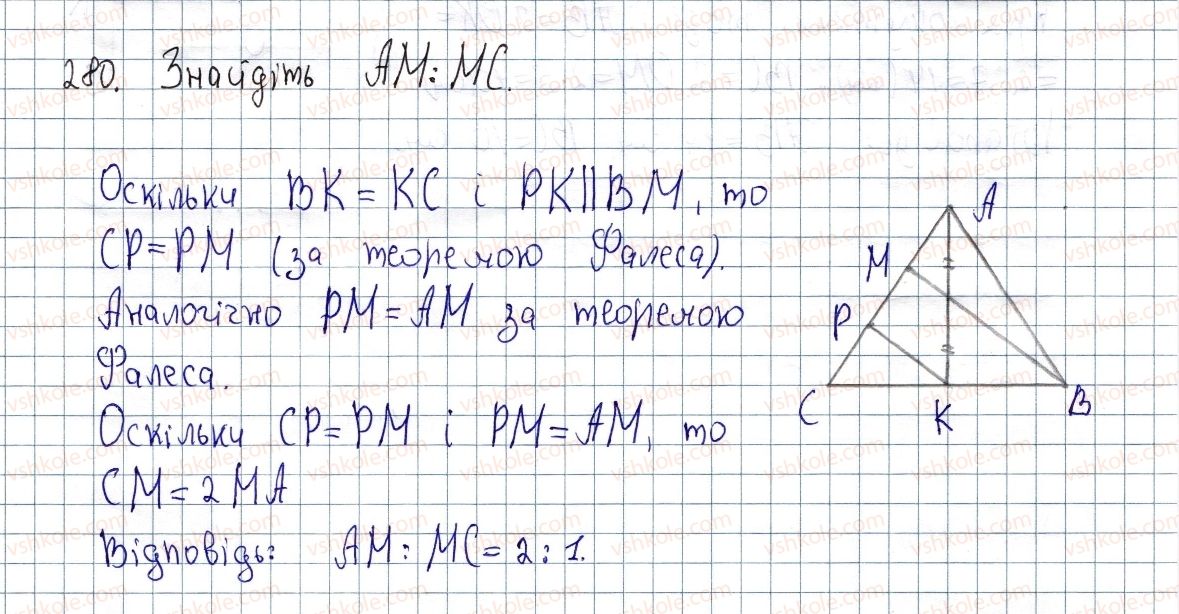 280. Знайдіть AM:MC.
Оскільки BK = KC і PK||BM, то
CP=PM (за теоремою Фалеса).
Аналогічно PM = AM за теоремою
Фалеса.
Оскільки CP=PM і PM=AM, то
CM=2MA
Відповідь: AM: MC=2:1.
A
M
P
C
K
B
vshkole.com